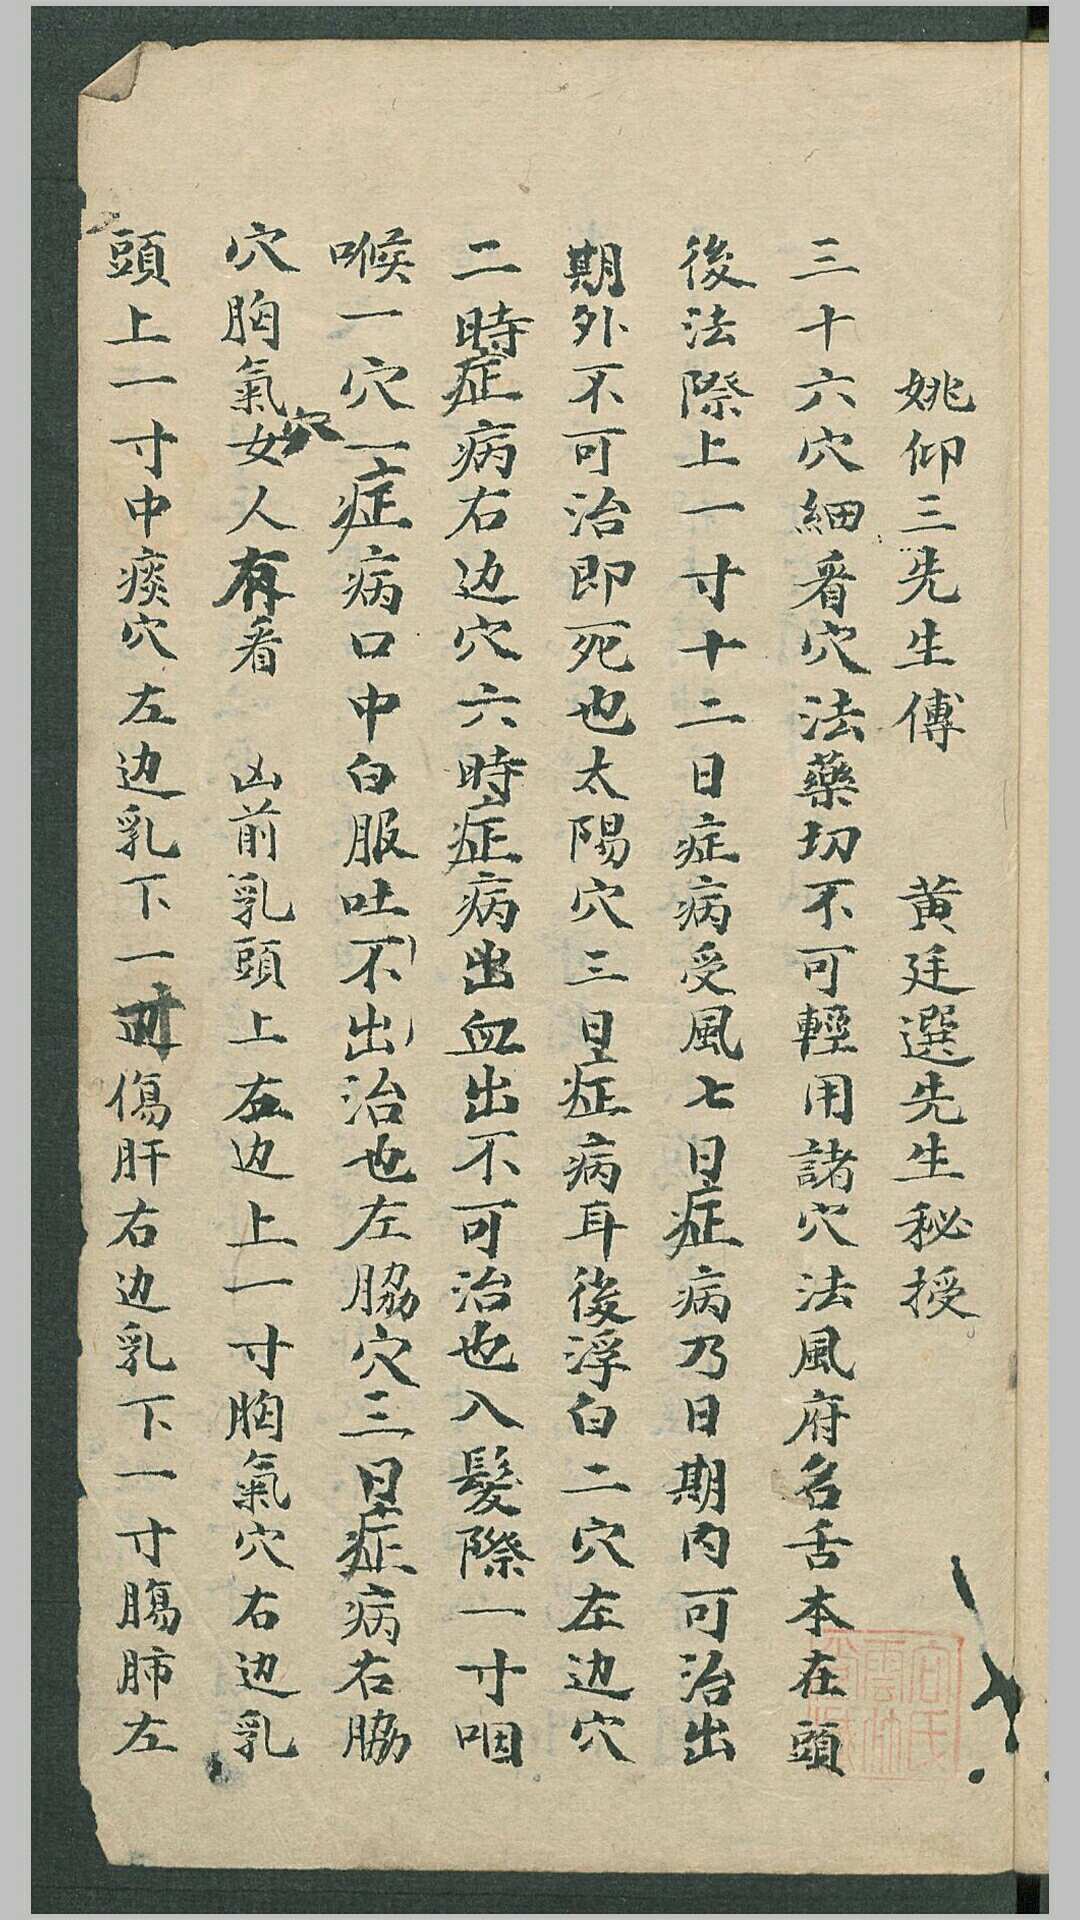 姚仰三先生傅　黄廷選先生秘授
三十六穴細看穴法藥切不可輕用諸穴法風府名舌本在頭
後法際上一寸十二日症病受風七日症病乃日期内可治出
期外不可治即死也太陽穴三日症病耳後浮白二穴左边穴
二時症病右边穴六時症病出血出不可治也入髮際一寸咽
喉一穴一症病口中白服吐不出治也左脇穴三日症病右脇
穴胸氣穴女人有看　凶前乳頭上右边上一寸胸氣穴右边乳
頭上一寸中痰穴左边乳下一寸傷肝右边乳下一寸膓肺左